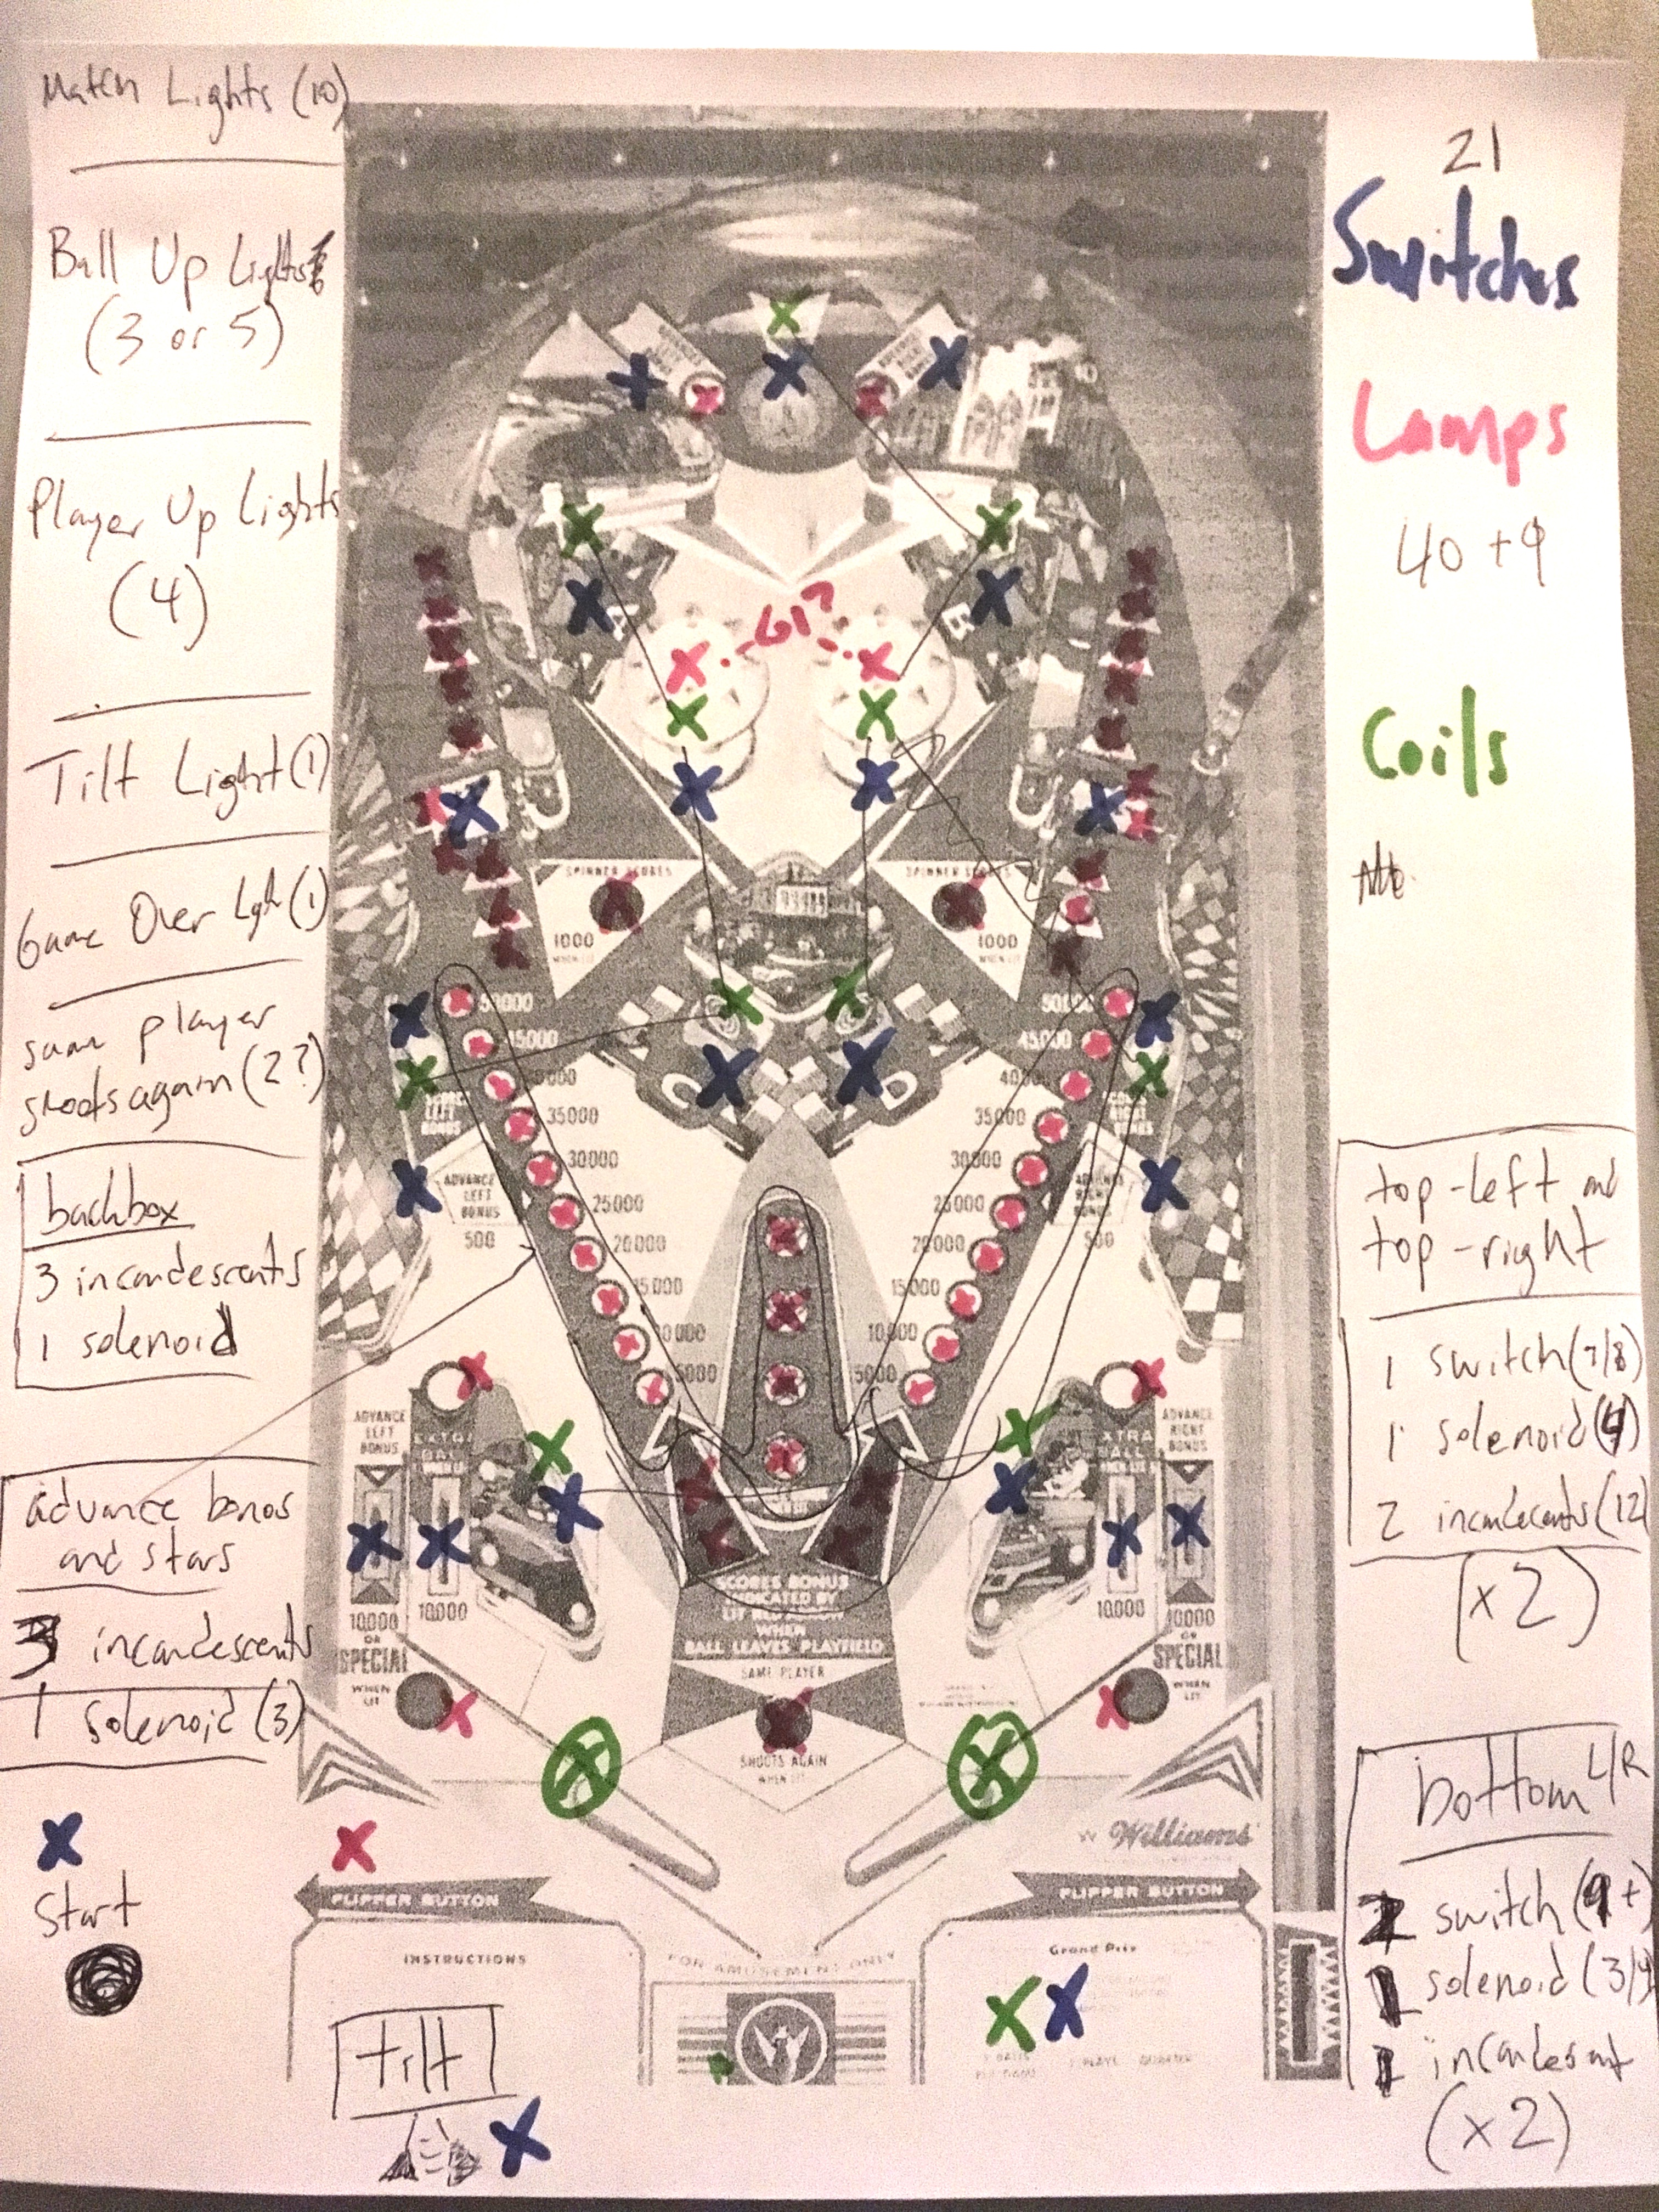 Match Lights (10)
Ball Up Lights
(3 or 5)
Player Up Lights
(4)
Tilt Light (1)
Game Over Light (1)
same player
shoots again (2?)
backbox
3 incandescents
1 solenoid
advance bonus
and stars
3 incandescents
1 solenoid (3)
Start
tilt
21
Switches
Lamps
40 + 9
Coils
top-left and
top-right
1 switch (7/8)
1 solenoid (4)
2 incandecents (12)
(x2)
bottom L/R
2 switch (9+)
1 solenoid (3/4)
1 incandesent
(x2)
A
B
GI?
SPINNER SCORES
1000
WHEN LIT
SPINNER SCORES
1000
WHEN LIT
C
D
50000
45000
35000
30000
25000
20000
15000
10000
5000
50000
45000
40000
35000
30000
25000
20000
15000
10000
5000
SCORES
LEFT
BONUS
ADVANCE
LEFT
BONUS
500
ADVANCES
RIGHT
BONUS
500
ADVANCE
LEFT
BONUS
EXTRA
BALL
WHEN LIT
10,000
OR
SPECIAL
WHEN
LIT
10,000
EXTRA
BALL
WHEN LIT
ADVANCE
RIGHT
BONUS
10,000
10,000
OR
SPECIAL
WHEN
LIT
SCORES BONUS
INDICATED BY
LIT
WHEN
BALL LEAVES PLAYFIELD
SAME PLAYER
SHOOTS AGAIN
WHEN LIT
Williams
FLIPPER BUTTON
FLIPPER BUTTON
INSTRUCTIONS
FOR AMUSEMENT ONLY
Grand Prix
BALLS
PER GAME
1 PLAY
QUARTER